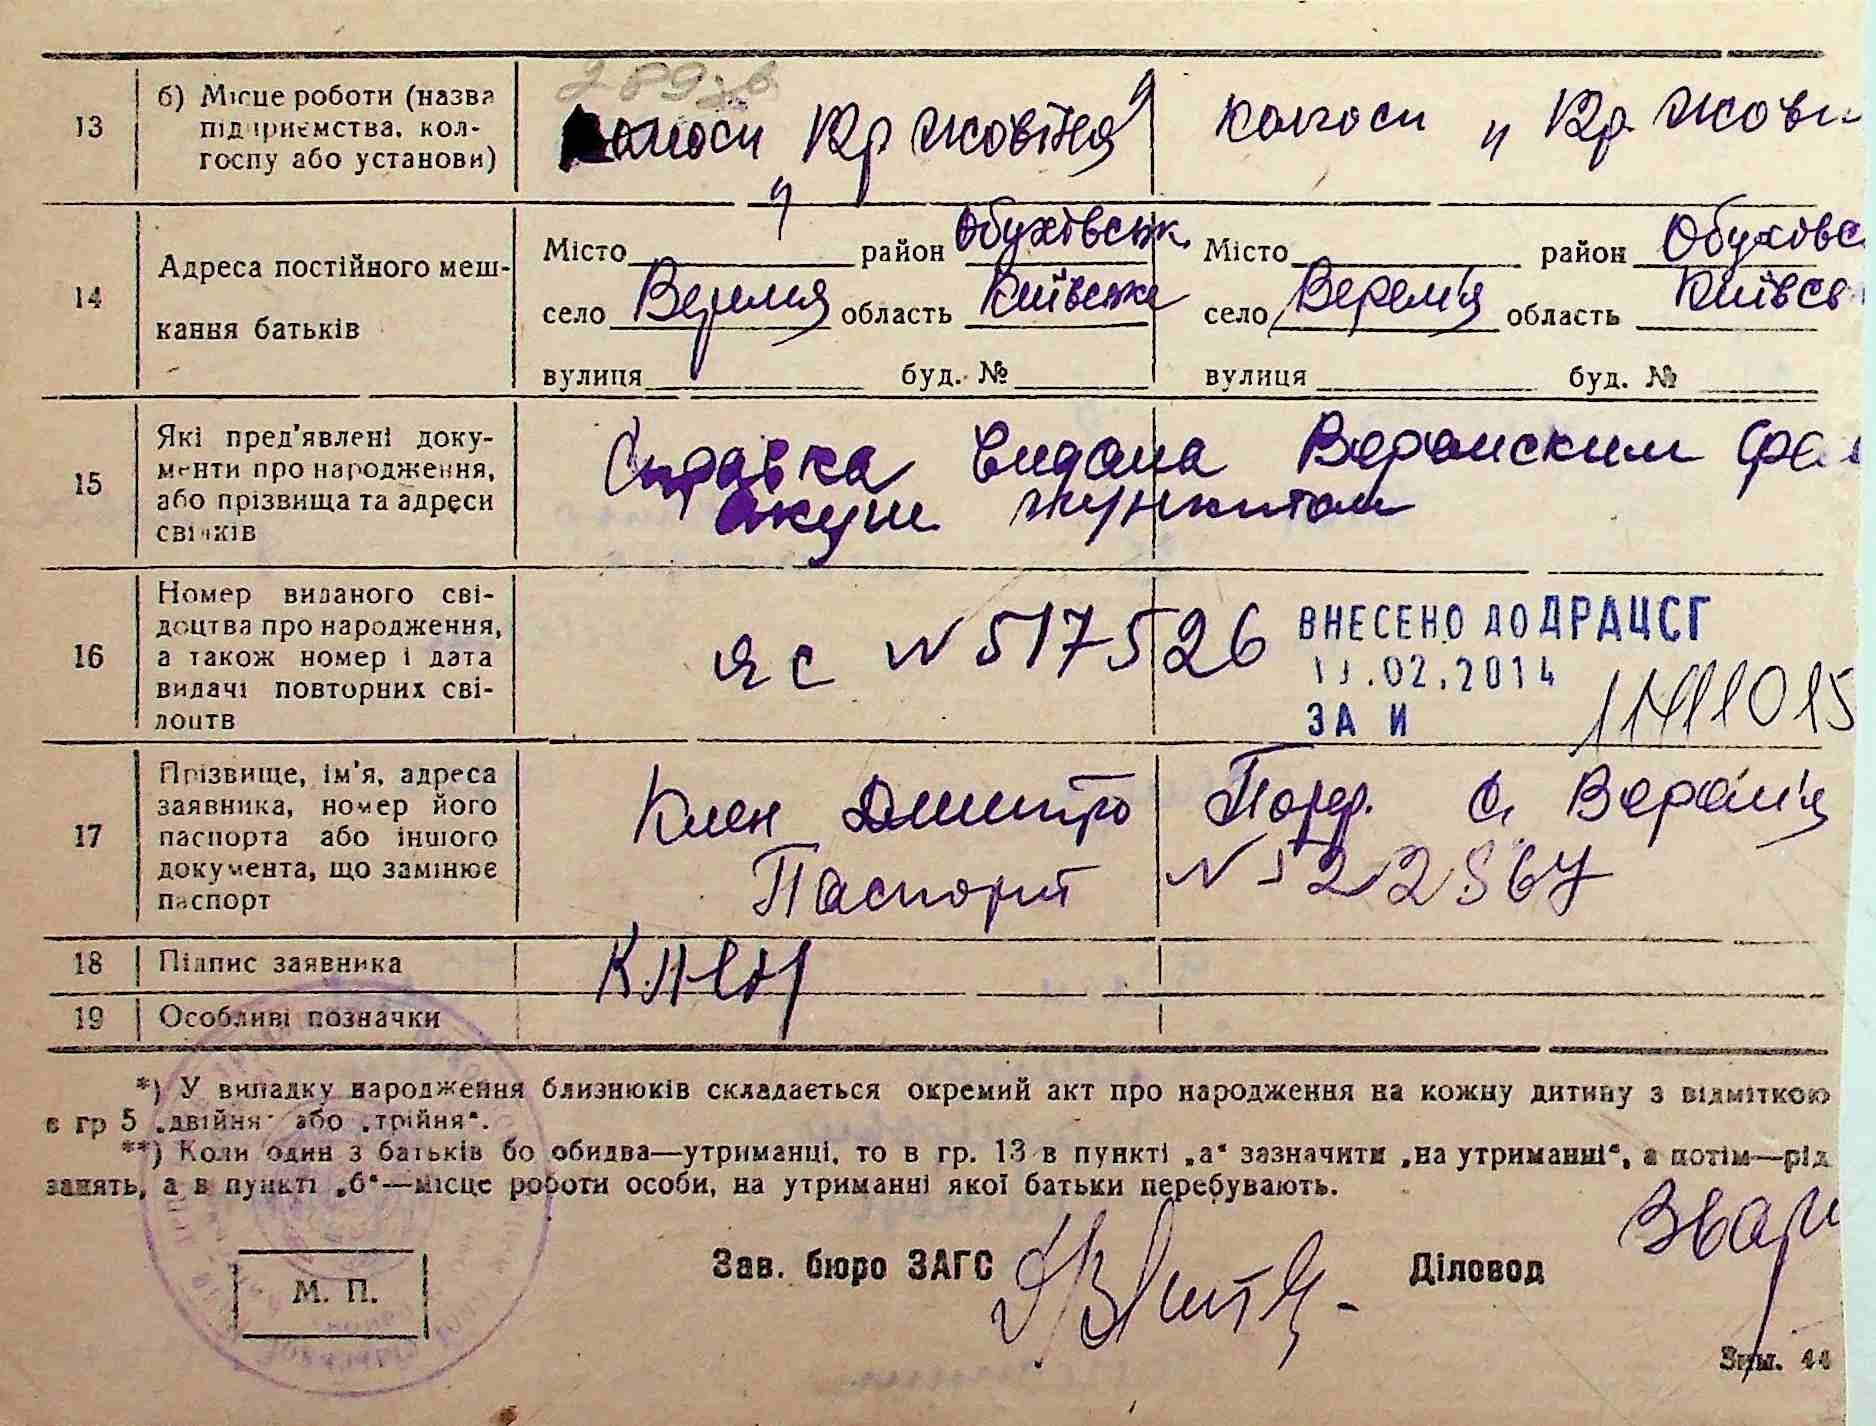 13 б) Місце роботи (назва підприємства, колгоспу або установи) колгосп Кр Жовтня" колгосп " Кр. Жовт
14 Адреса постійного мешкання батьків
Місто район Обухівськ. Місто район Обухівс
село Веремя область Київська село Верем'я область Київсь
вулиця буд. № вулиця буд. №
15 Які пред'явлені документи про народження, або прізвища та адреси свідків
Справка видана Веремским фел
акуш. пунктом
16 Номер виданого свідоцтва про народження, а також номер і дата видачі повторних свідоцтв
ЯС N 517526
ВНЕСЕНО ДО ДРАЦСГ
.02.2014
ЗА И
17 Прізвище, ім'я, адреса заявника, номер його паспорта або іншого документа, що замінює паспорт
Клен Дмитро с. Верем'я
Паспорт N
18 Підпис заявника Клен
19 Особливі позначки
*) У випадку народження близнюків складається окремий акт про народження на кожну дитину з відміткою
в гр 5 „двійня" або „трійня".
**) Коли один з батьків бо обидва—утриманці, то в гр. 13 в пункті „а" зазначити „на утриманні", а потім—рід
занять, а в пункті „б"—місце роботи особи, на утриманні якої батьки перебувають.
М. П.
Зав. бюро ЗАГС
Діловод Звар
Зам. 44